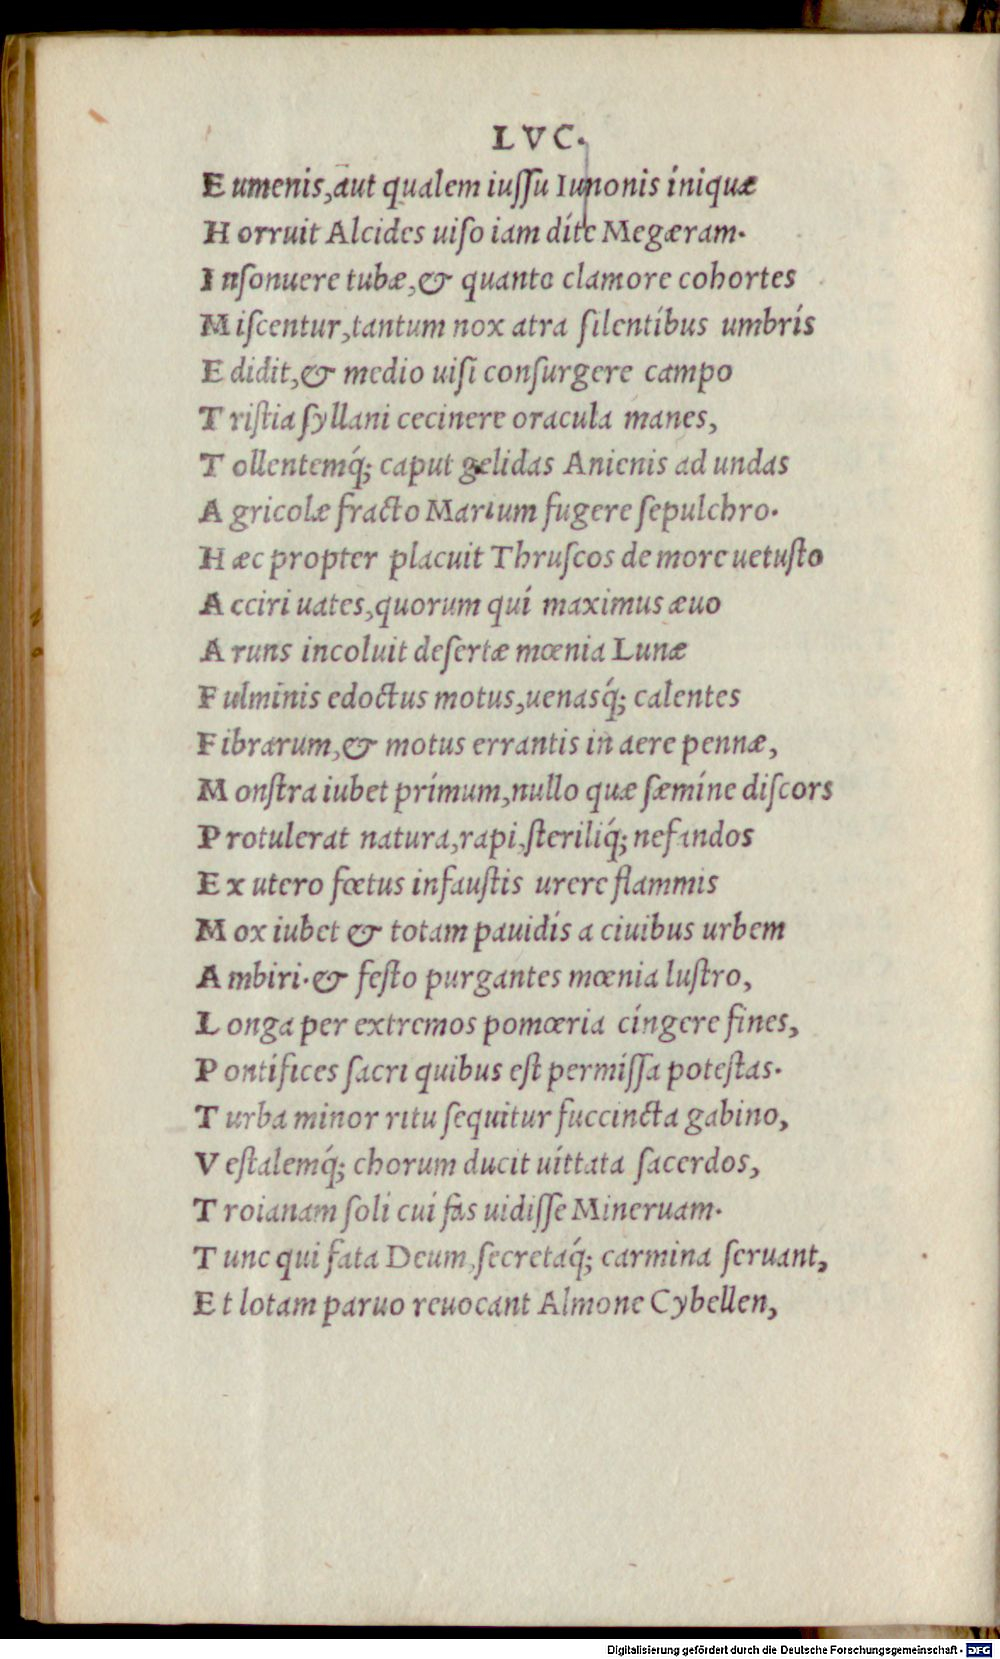 LVC.
E umenis, aut qualem iuſſu Iunonis iniquæ
H orruit Alcides uiſo iam dite Megæram.
I nſonuere tubæ, & quanto clamore cohortes
M iſcentur, tantum nox atra ſilentibus umbris
E didit, & medio uiſi conſurgere campo
T riſtia ſyllani cecinere oracula manes,
T ollentemq́; caput gelidas Anienis ad undas
A gricolæ fracto Marium fugere ſepulchro.
H æc propter placuit Thruſcos de more uetuſto
A cciri uates, quorum qui maximus æuo
A runs incoluit deſertæ mœnia Lunæ
F ulminis edoctus motus, uenasq́; calentes
F ibrarum, & motus errantis in aere pennæ,
M onſtra iubet primum, nullo quæ ſæmine diſcors
P rotulerat natura, rapi, ſteriliq́; nefandos
E x utero fœtus infauſtis urere flammis
M ox iubet & totam pauidis a ciuibus urbem
A mbiri. & feſto purgantes mœnia luſtro,
L onga per extremos pomœria cingere fines,
P ontifices ſacri quibus eſt permiſſa poteſtas.
T urba minor ritu ſequitur ſuccincta gabino,
V eſtalemq́; chorum ducit uittata ſacerdos,
T roianam ſoli cui fas uidiſſe Mineruam.
T unc qui fata Deum, ſecretaq́; carmina ſeruant,
E t lotam paruo reuocant Almone Cybellen,
Digitalisierung gefördert durch die Deutsche Forschungsgemeinschaft - DFG